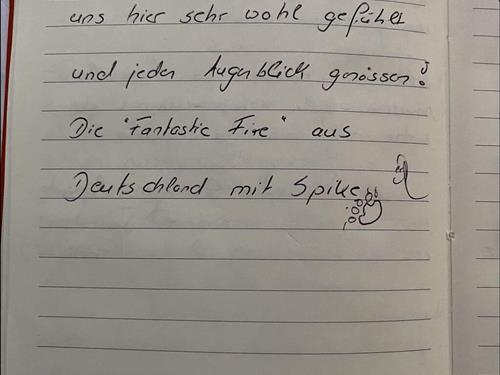 uns hier sehr wohl gefühlt
und jeden Augenblick genossen!
Die "Fantastic Fire" aus
Deutschland mit Spike